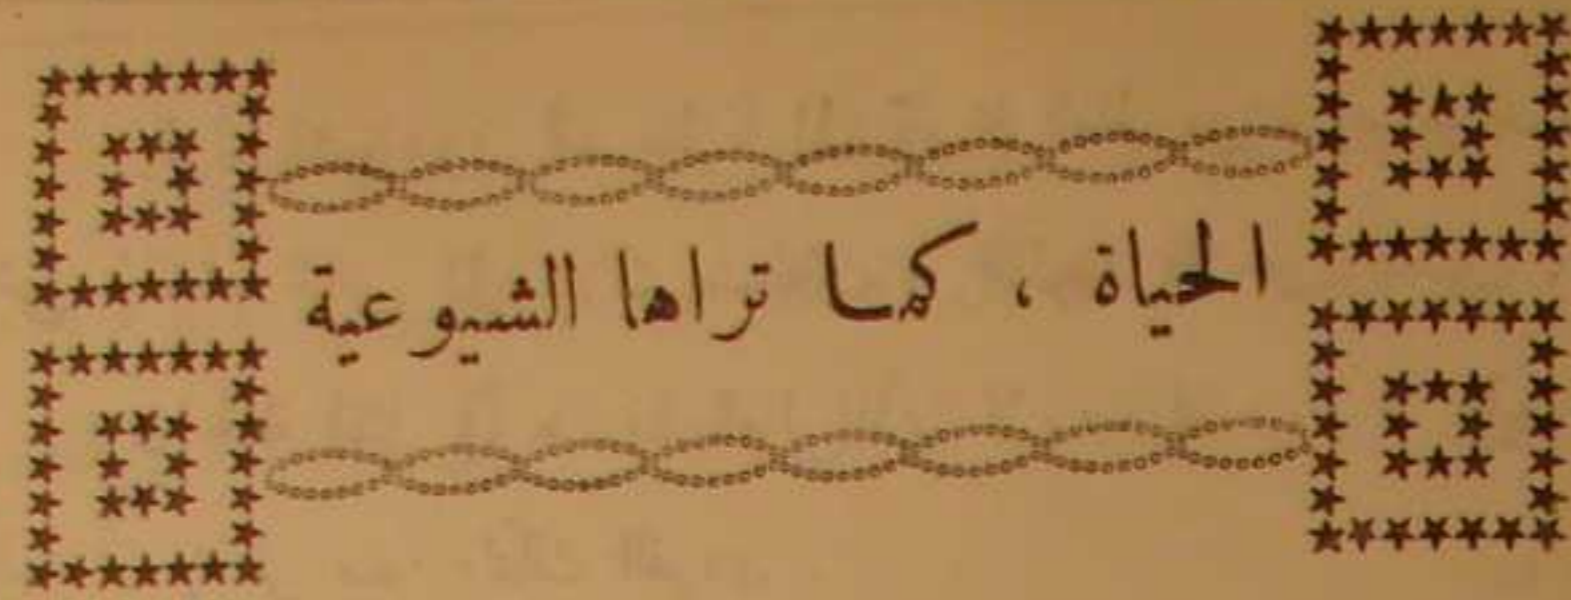 الحياة ، كما تراها الشيوعية